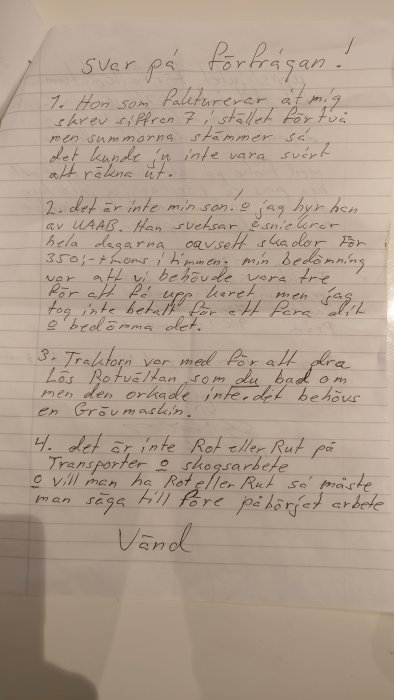 svar på förfrågan!
1. Hon som fakturerar åt mig
skrev siffran 7 i stället för två
men summorna stämmer så
det kunde ju inte vara svårt
att räkna ut.
2. det är inte min son! o jag hyr han
av UAAB. Han svetsar o snickrar
hela dagarna oavsett skador För
350:- +moms i timmen. min bedömning
var att vi behövde vara tre
för att få upp karet men jag
tog inte betalt för att fara dit
o bedömma det.
3. Traktorn var med för att dra
Lös Rotvältan som du bad om
men den orkade inte. det behövs
en Grävmaskin.
4. det är inte Rot eller Rut på
Transporter o skogsarbete
o vill man ha Rot eller Rut så måste
man säga till före påbörjat arbete
Vänd